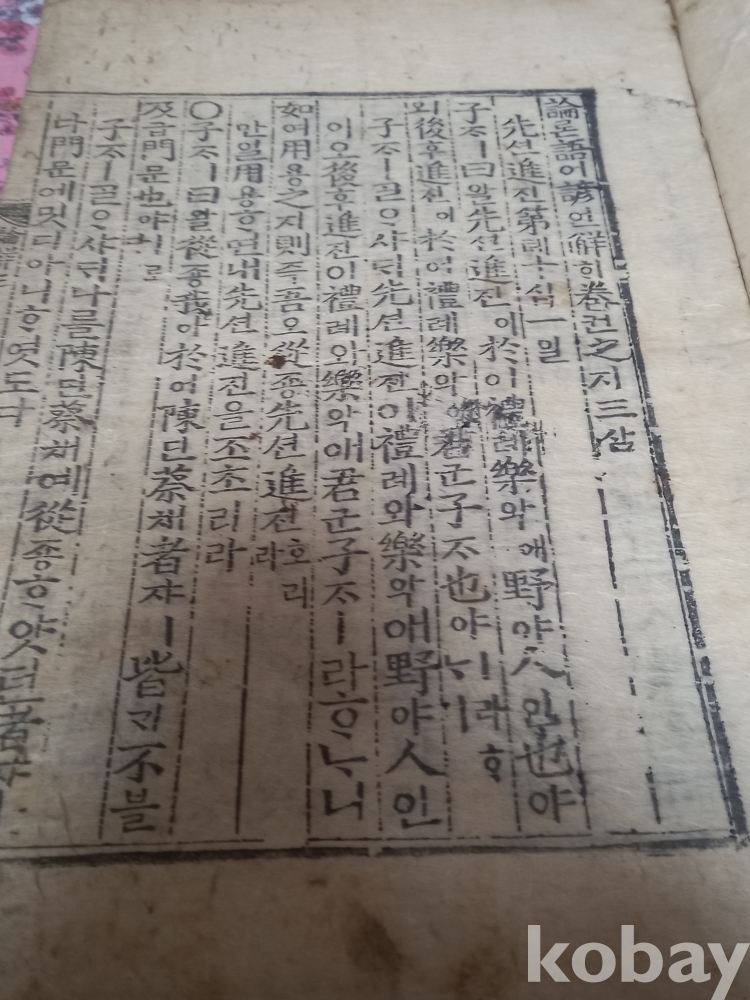 論론語어諺언解ᄒᆡ卷권之지三삼
先션進진第뎨十십一일
子ᄌᆞㅣ曰왈先션進진이於어禮례樂악애野야人인也야ㅣ
오後후進진이於어禮례樂악애君군子ᄌᆞ也야ㅣ라ᄒᆞᄂᆞ니
子ᄌᆞㅣᄀᆞᆯᄋᆞ샤ᄃᆡ先션進진이禮례와樂악애野야人인
이오後후進진이禮례와樂악애君군子ᄌᆞㅣ라ᄒᆞᄂᆞ니
如여用용之지則즉吾오從죵先션進진호리라
만일用용ᄒᆞ면내先션進진을조초리라
○子ᄌᆞㅣ曰왈從죵我아於어陳딘蔡채者쟈ㅣ皆ᄀᆡ不블
及급門문也야ㅣ로
子ᄌᆞㅣᄀᆞᆯᄋᆞ샤ᄃᆡ나를陳딘蔡채예從죵ᄒᆞ얏던者쟈ㅣ
다門문에밋디아니ᄒᆞ엿도다
kobay